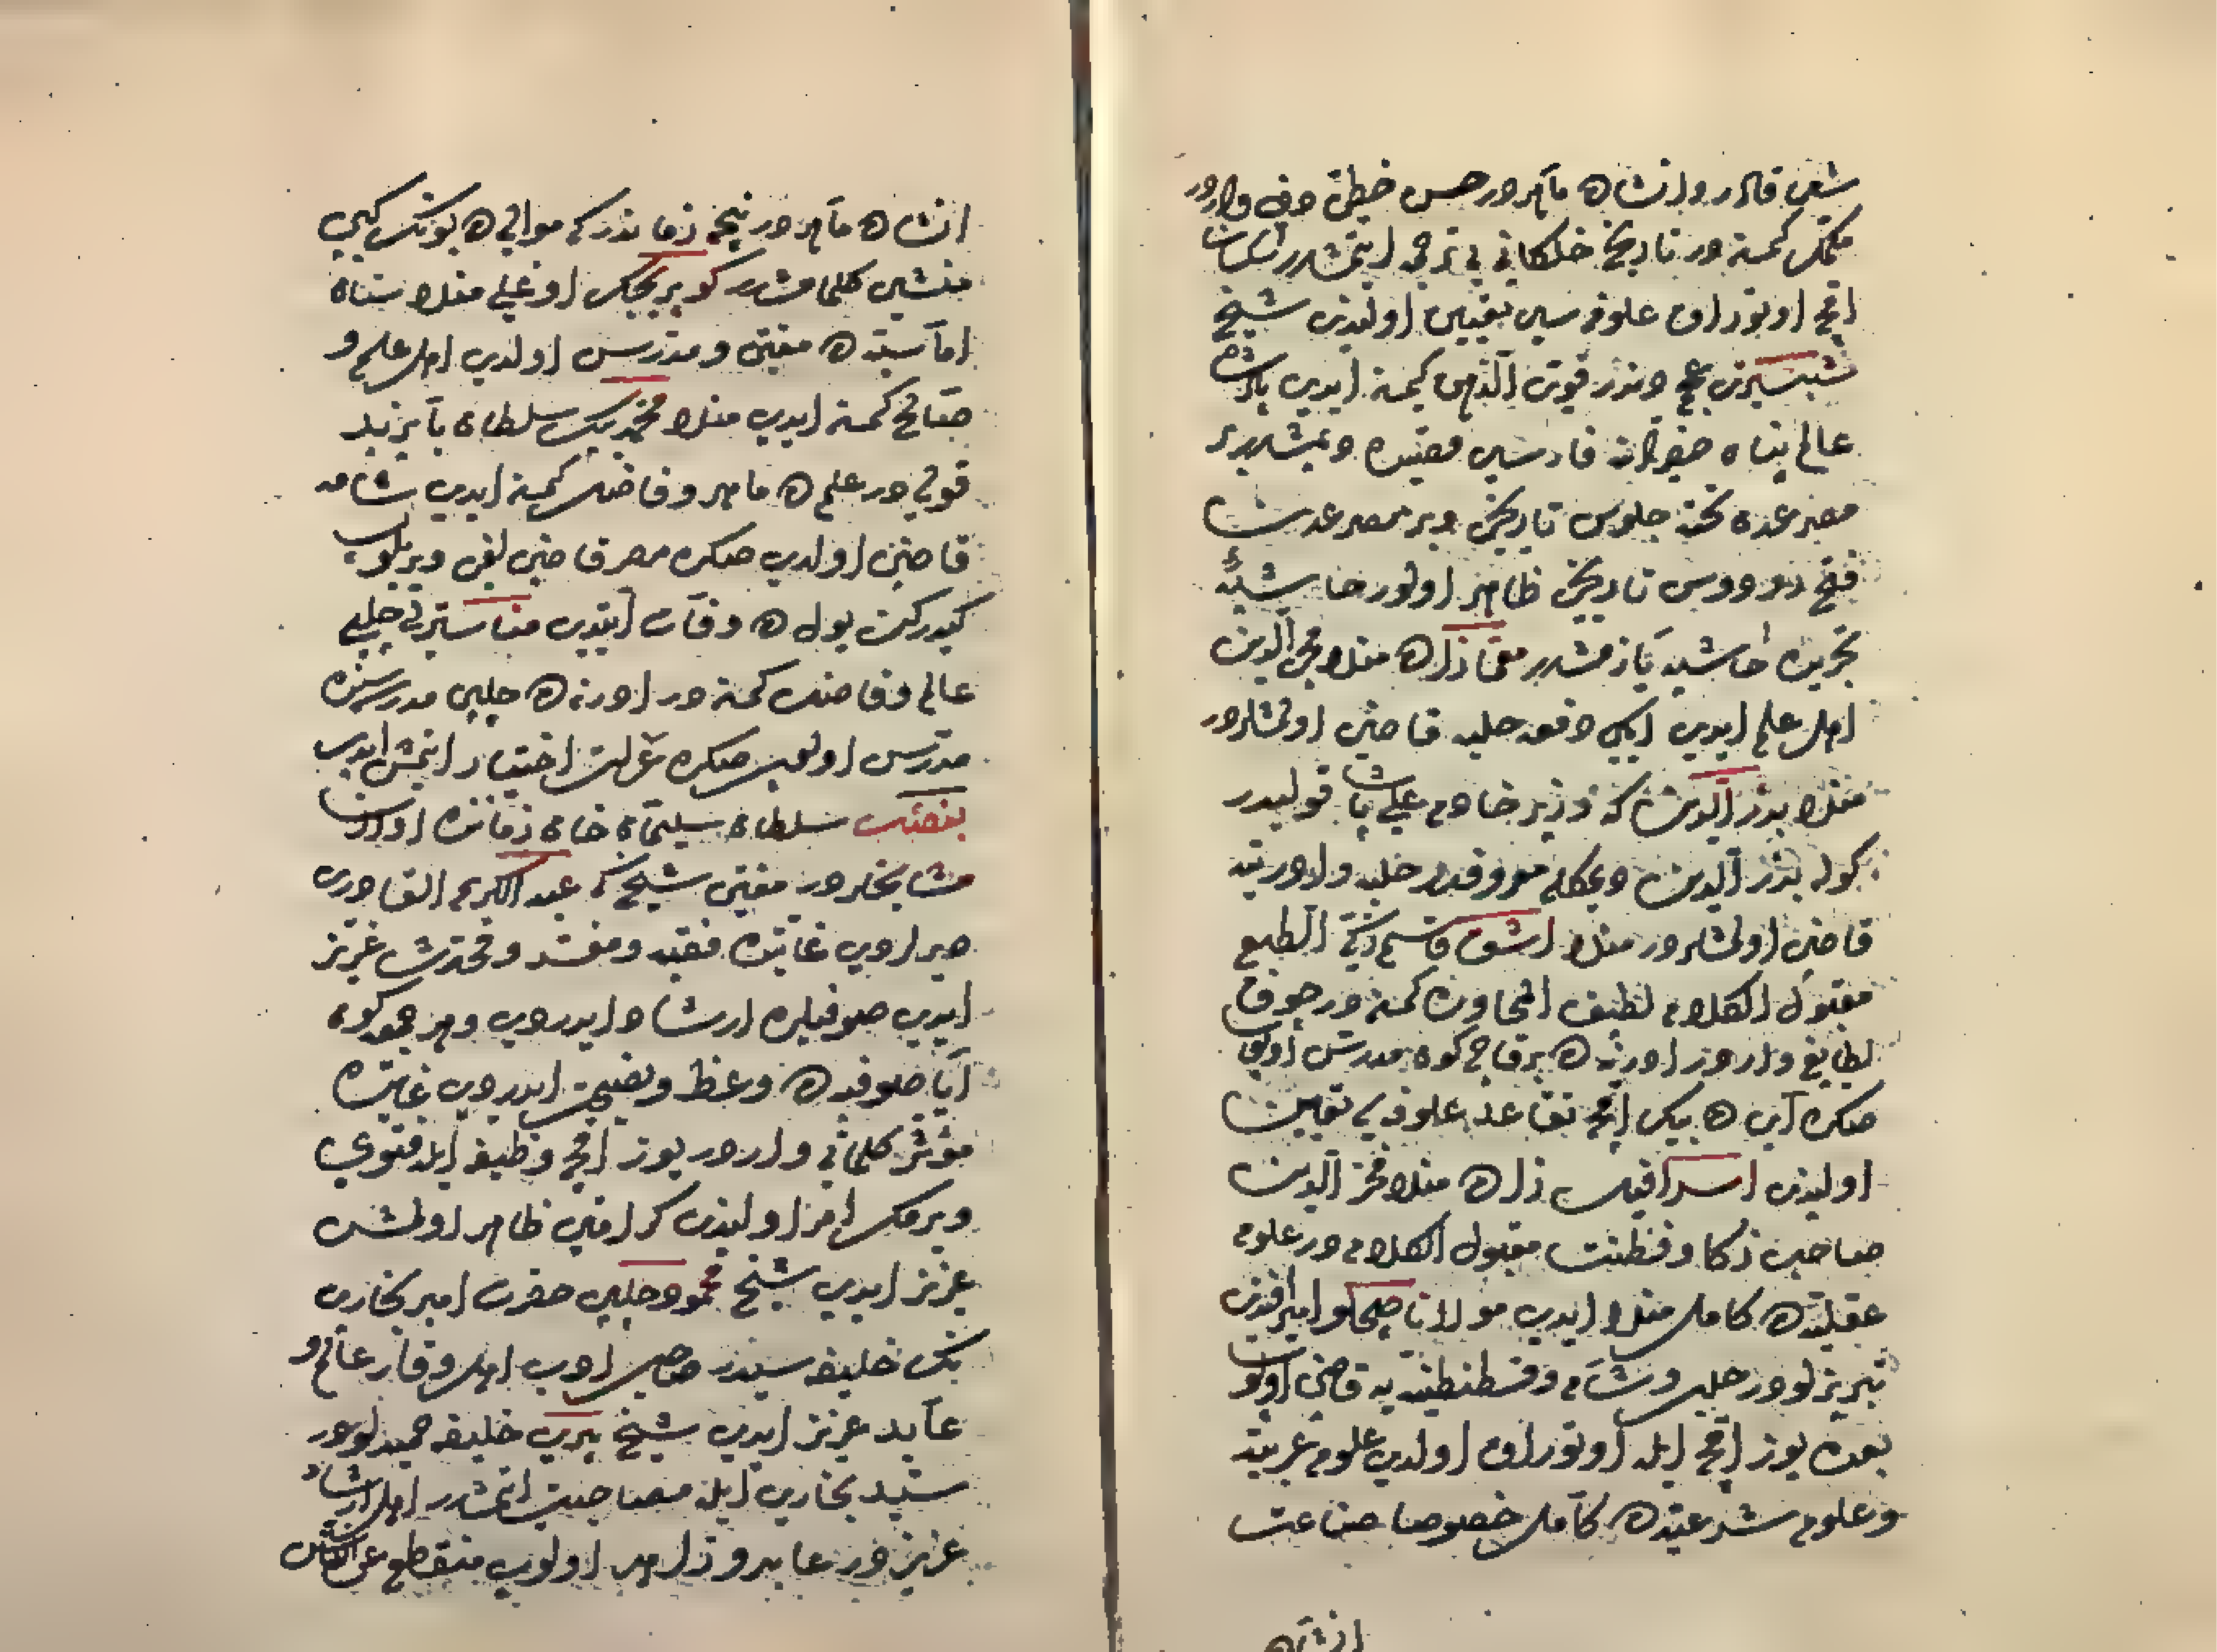 شعره قادر و انشاده ماهردر حسن خطی دخی واردر
مکمل کمسنه در تاریخ خلکانی یی ترجمه ایتمشدر سکسان
اقچه اوتوراق علوفه سی تعیین اولندی شیخ
شبستری عجمدندر قوی الذهن کمسنه ایدی پادشاه
عالم پناه حضرتنه فارسی قصیده دیمشدر بر
مصرعده تخته جلوس تاریخی و بر مصرعدن
فتح ردووس تاریخی ظاهر اولور حاشیه
تجریده حاشیه یازمشدر منلا محی الدین
اهل علم ایدی ایکی دفعه حلبه قاضی اولمشلردر
منلا بدر الدین که وزیر خادم علی پاشا قولیدر
کوله بدر الدین دیمکله معروفدر حلبه ولارندیه
قاضی اولمشلردر منلا اشق قاسم ذکی الطبع
مقبول الکلام لطیف المحاوره کمسنه در چوق
لطایفی واردر ادرنه ده برقاچ کره مدرس اولوب
صکره آنده بیک اقچه تقاعد علوفه سی تعیین
اولندی اسرافیل زاده منلا فخر الدین
صاحب ذکا و فطنت مقبول الکلامدر علوم
عقلیه ده کامل منلا ایدی مولانا صچلو امیر افندی
تبریزلودر حلب و شام و قسطنطنیه یه قاضی اولوب
بعده یوز اقچه ایله اوتوراق اولدی علوم عربیه
و علوم شرعیه ده کامل خصوصا صناعت
انشاده
انشاده ماهردر نیجه زماندر که موالیده بونک کبی
منشی کلمامشدر کوپریجک اوغلی منلا سنان
اماسیه ده مفتی و مدرس اولدی اهل علم و
صالح کمسنه ایدی منلا محمد بک سلطان بایزید
قولیدر علمده ماهر و فاضل کمسنه ایدی شامه
قاضی اولدی صکره مصر قاضی لغی ویریلوب
کیدرکن یولده وفات ایتدی مناسترلی چلبی
عالم و فاضل کمسنه در ادرنه ده چلبی مدرسه سنده
مدرس اولوب صکره عزلت اختیار ایتمش ایدی
بعضی سلطان سلیمان خان زماننده اولان
مشایخلردر مفتی شیخ که عبد الکریم القادری
دیرلردی غایتده فقیه و مفسر و محدث عزیز
ایدی صوفیلره ارشاد ایدردی و هر جمعه کون
ایا صوفیه ده وعظ و نصیحت ایدردی غایتده
مؤثر کلماتی واردر یوز اقچه وظیفه ایله فتوی
ویرمک امر اولندی کرامتی ظاهر اولمش
عزیز ایدی شیخ محمود چلبی حضرت امیر بخاری
نک خلیفه سیدر صاحب ادب اهل وقار عالم و
عابد عزیز ایدی شیخ پیری خلیفه حمیدلودر
سید بخاری ایله مصاحبت ایتمشدر اهل ارشاد
عزیزدر عابد و زاهد اولوب منقطع عن الناس